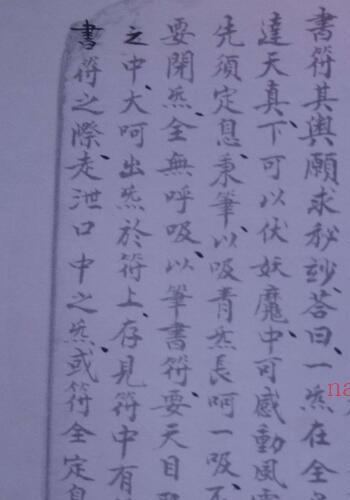 書符其輿願求秘玅、答曰、一炁在全
達天真、下可以伏妖魔、中可感動風
先須定息、秉筆、以吸青炁長呵一吸、不
要閉炁、全無呼吸、以筆書符、要天目
之中、大呵出炁於符上、存見符中有
書符之際、走泄口中之炁、或符全定息
na